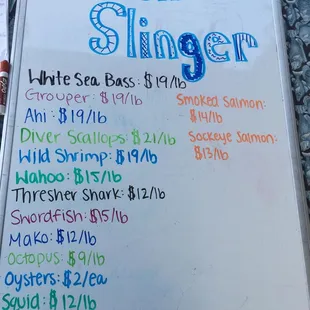 Slinger
White Sea Bass: $19/lb
Grouper: $19/lb
Ahi: $19/lb
Diver Scallops: $21/lb
Wild Shrimp: $19/lb
Wahoo: $15/lb
Thresher Shark: $12/lb
Swordfish: $15/lb
Mako: $12/lb
Octopus: $9/lb
Oysters: $2/ea
Squid: $12/lb
Smoked Salmon:
$14/lb
Sockeye Salmon:
$13/lb